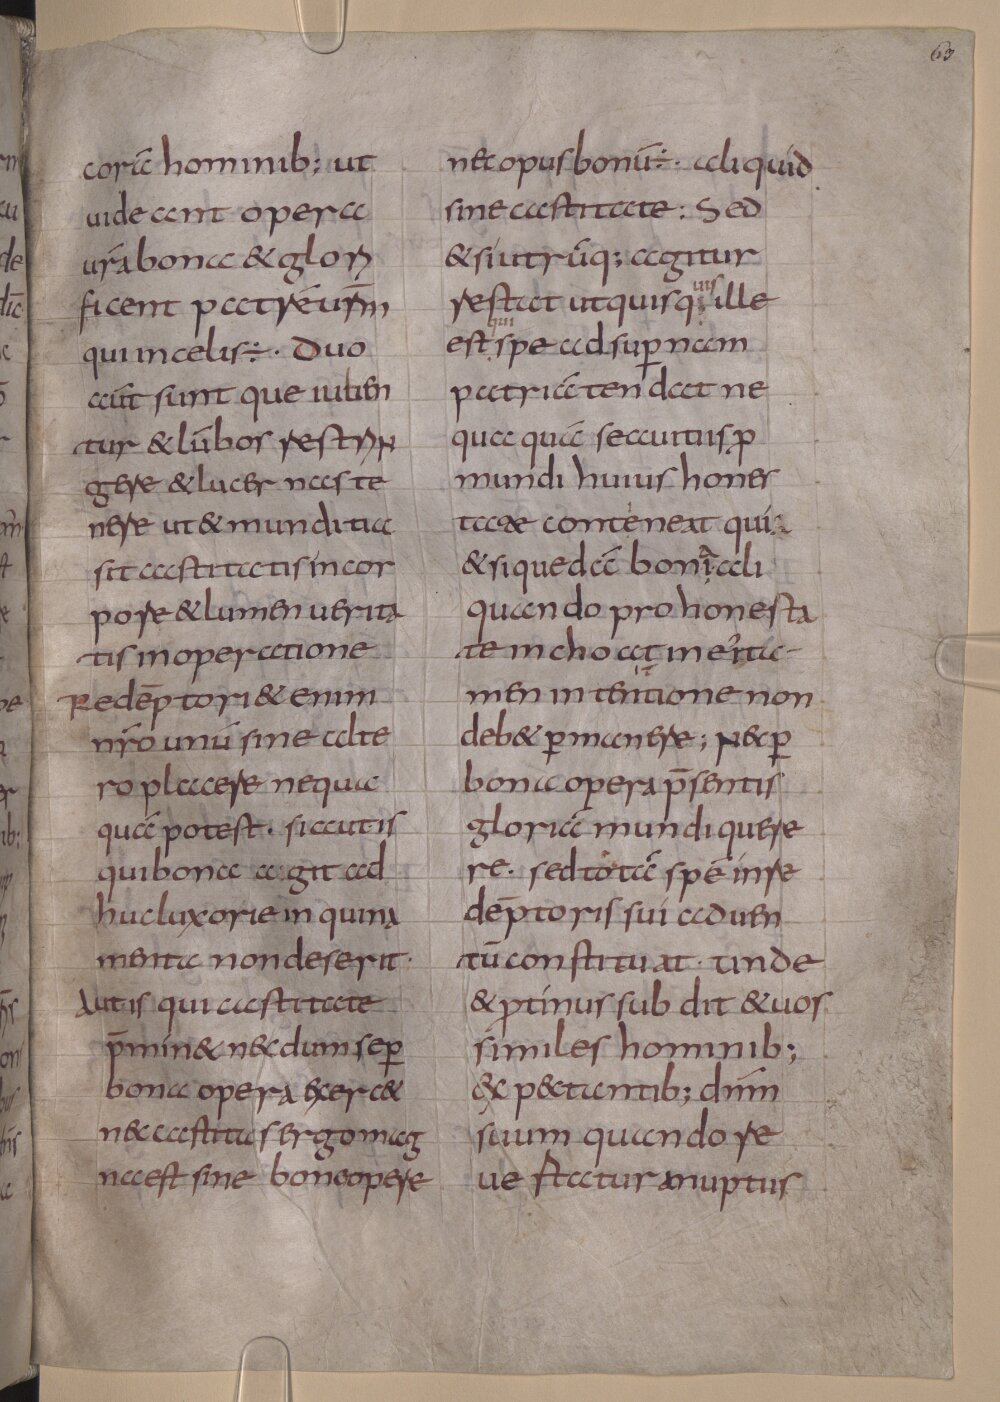 63
corā hominib; ut
uideant opera
ur̄a bona & glori
ficent patrē ur̄m
qui in celis÷· Duo
aūt sunt que iuben
tur & lūbos restrin
gere & lucernas te
nere ut & munditia
sit castitatis in cor
pore & lumen uerita
tis in operatione
Redēptori & enim
nr̄o unū sine alte
ro placere nequa
quā potest· si autis
qui bona agit ad
huc luxorie in quina
menta non deserit·
Autis qui castitate
p̄min& nec dum sep̄
bona opera exerc&
nec castitas ergo mag
na est sine bono opere
nec opus bonū÷· aliquid
sine castitate: Sed
& si utrūq; agitur
restat ut quisq; uis ille
est qui spe ad sup̄nam
patriā tendat ne
quaquā se a uitiis p̄
mundi huius hones
tate conteneat qui
& si quedā bona ali
quando pro honesta
te inchoat in eīta
men intentione non
deb& p̄manere; nec p̄
bona opera p̄sentis
gloriā mundi quere
re· sed totā spē in re
dēptoris sui aduen
tū constituat· unde
& p̄tinus subdit & uos
similes hominib;
exp&tantib; dn̄m
suum quando re
ue rtatur a nuptus